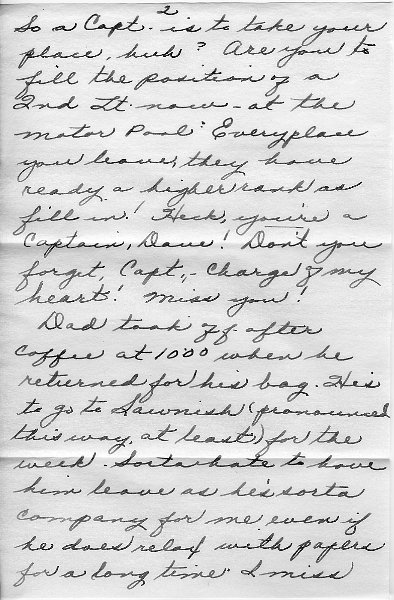 2
So a Capt. is to take your
place, huh? Are you to
fill the position of a
2nd Lt. now - at the
motor Pool? Everyplace
you leave, they have
ready a higher rank as
fill in! Heck, you're a
Captain, Dave! Don't you
forget, Capt., - Charge of my
heart! Miss you!
Dad took off after
coffee at 10:00 when he
returned for his bag. He's
to go to Sawnish (pronounced
this way, at least) for the
week. Sorta hate to have
him leave as he's sorta
company for me even if
he does relax with papers
for a long time. I miss